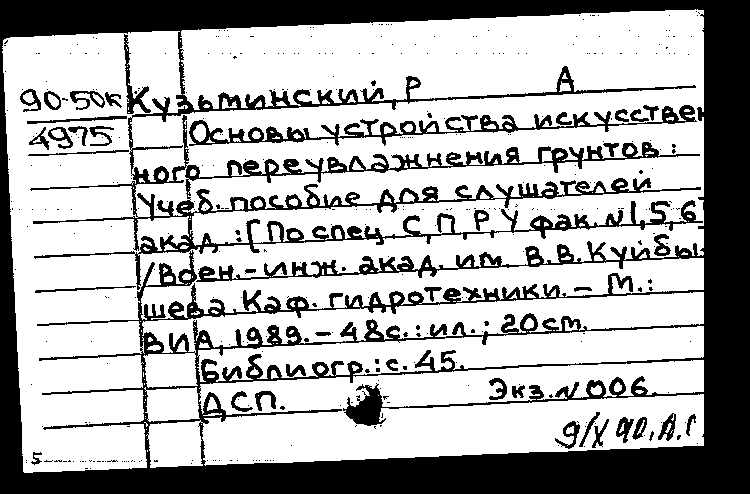 90-50к Кузьминский, Р А
4975 Основы устройства искусствен
ного переувлажнения грунтов :
Учеб. пособие для слушателей
акад. : [По спец. С, П, Р, У фак. N 1, 5, 6]
/Воен.-инж. акад. им. В.В. Куйбы-
шева. Каф. гидротехники. – М.:
ВИА, 1989. – 48с. : ил. ; 20см.
Библиогр.: с. 45.
ДСП. Экз. N 006.
9/X 90. А.Г
5